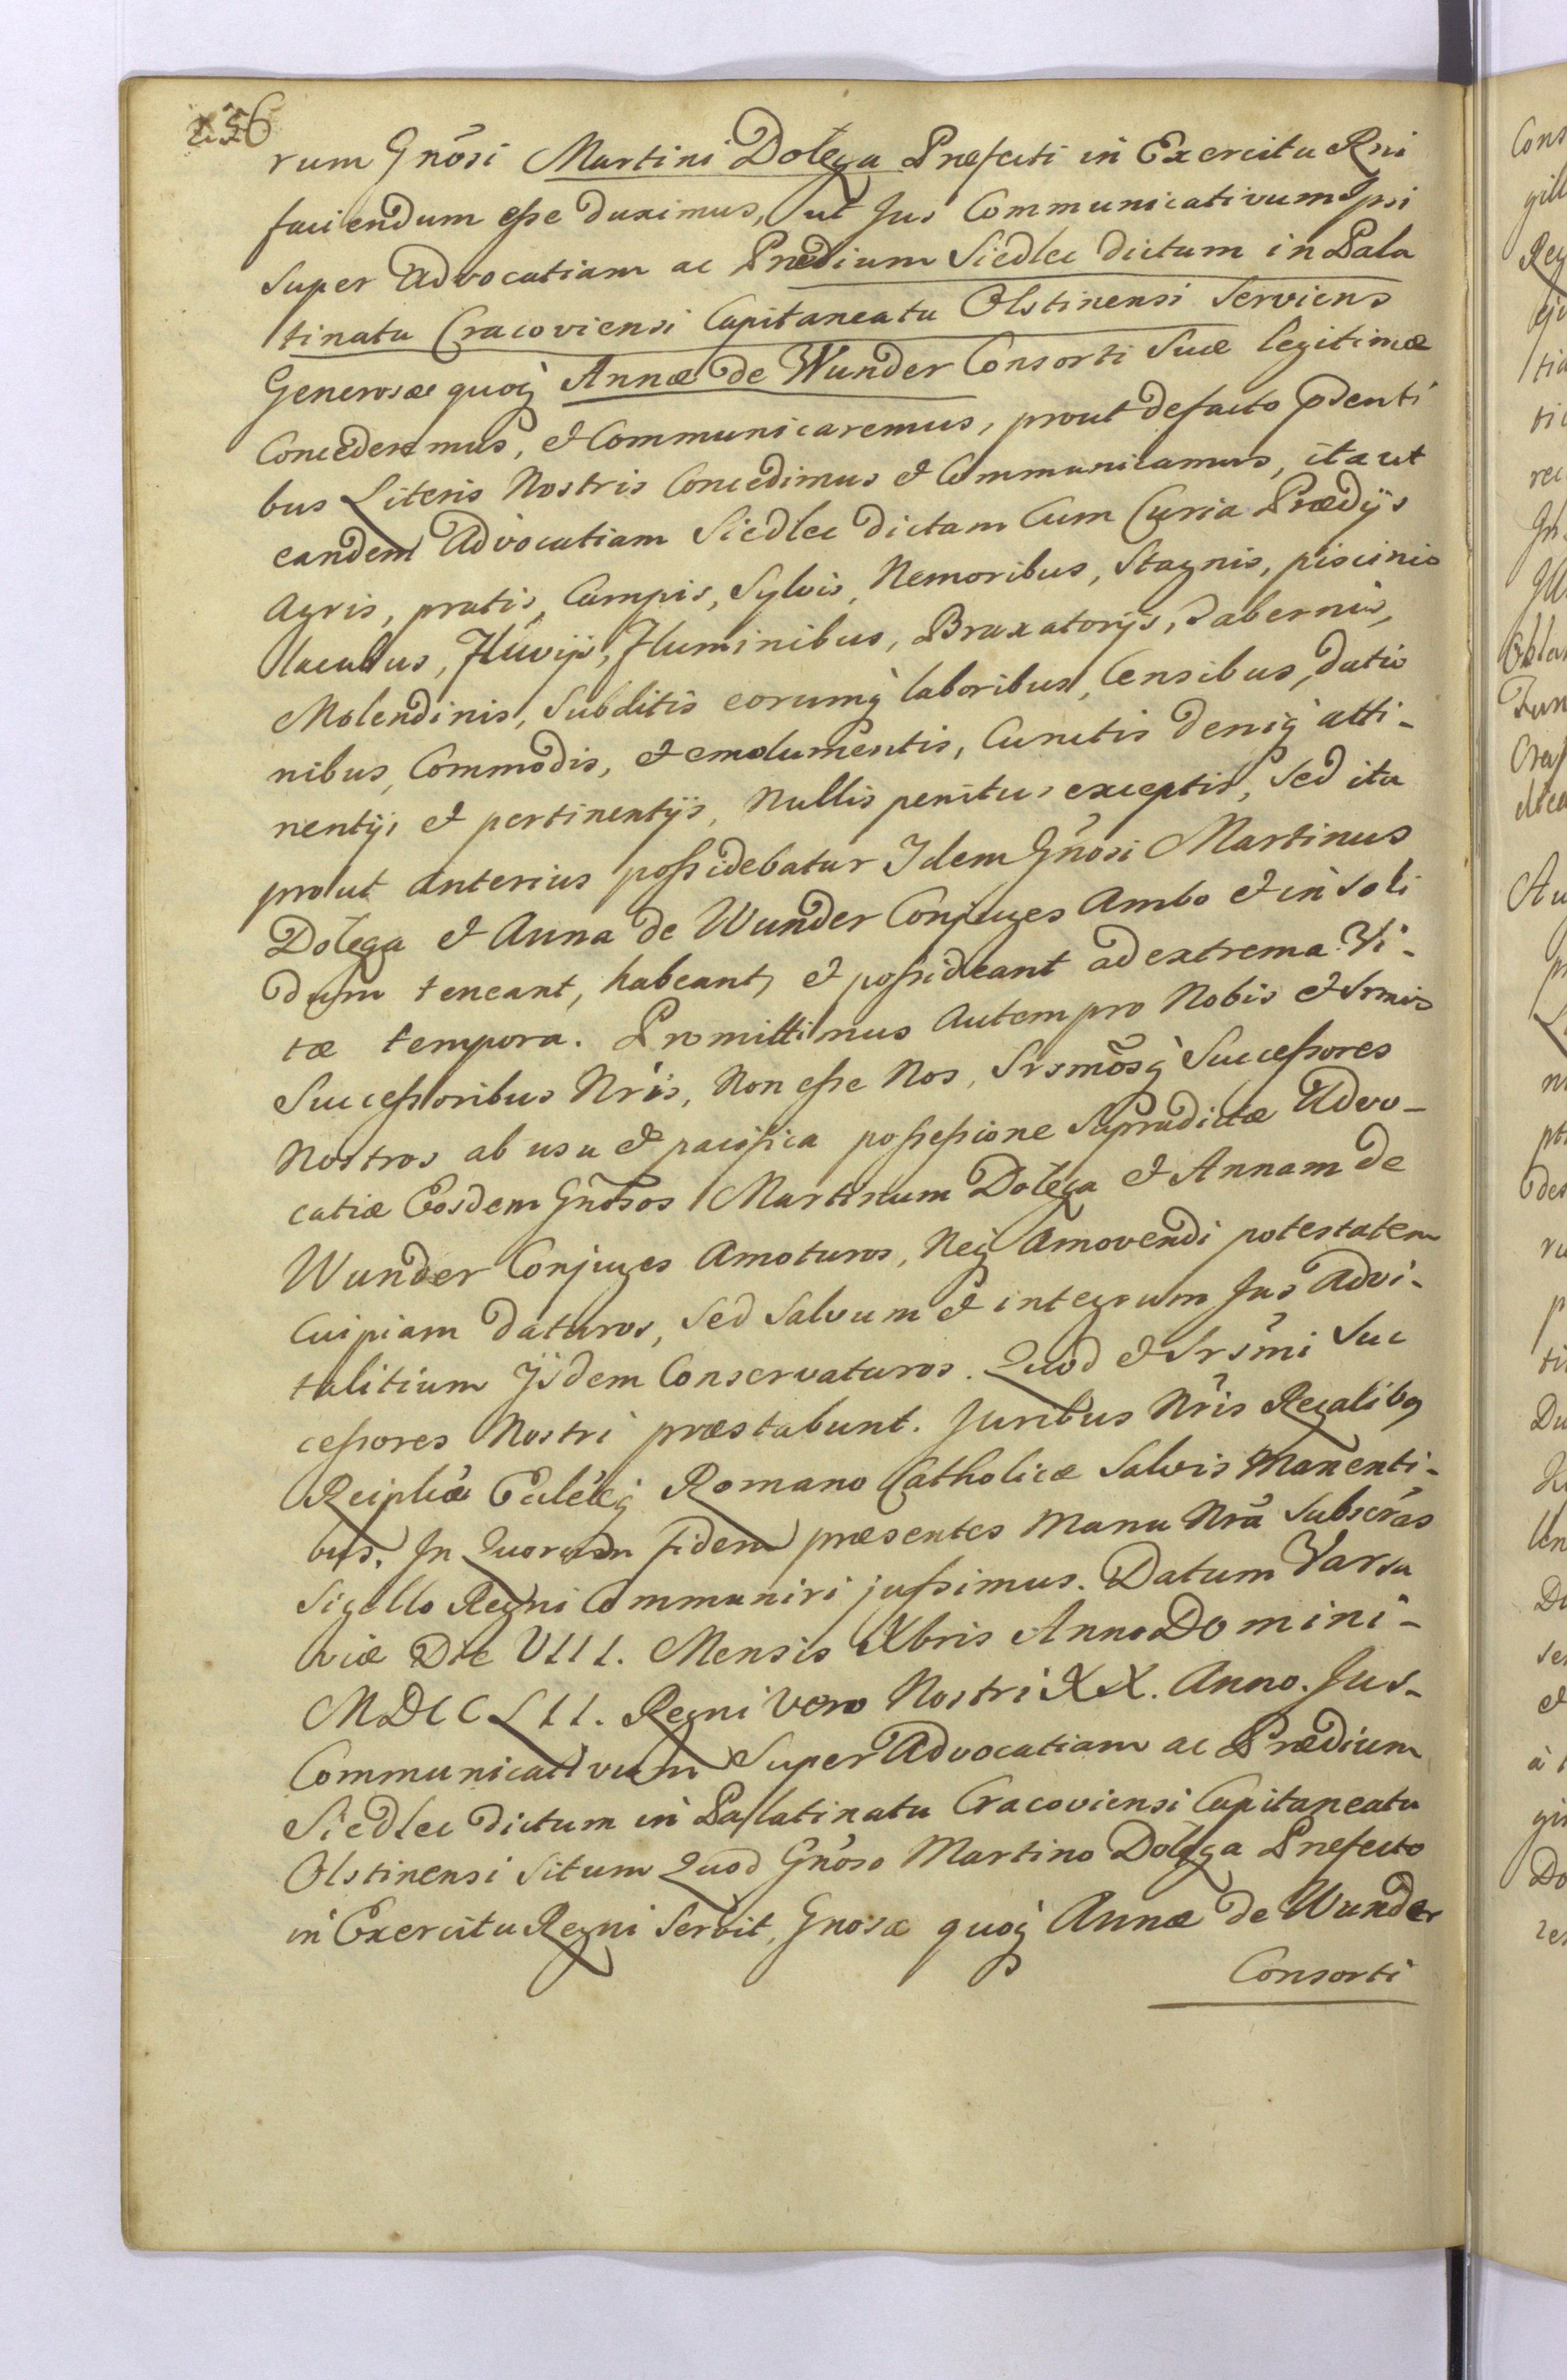 256
rum Gnosi Martini Dołęga Præfecti in Exercitu Rni
faciendum esse duximus, ut Jus Communicativum Ipsi
super Advocatiam ac Prædium Siedlec dictum in Pala
tinatu Cracoviensi Capitaneatu Olstinensi Serviens
Generosæ quoq Annæ de Wunder Consorti Suæ legitimæ
Concederemus, et Communicaremus, prout defacto psenti
bus Literis Nostris Concedimus et Communicamus, ita ut
eandem Advocatiam Siedlec dictam Cum Curia Prædijs
Agris, pratis, Campis, Sylvis, Nemoribus, Stagnis, piscinis
lacubus, Fluvijs, Fluminibus, Braxatorijs, Tabernis,
Molendinis, Subditis eorumq laboribus, Censibus, datio
nibus, Commodis, et emolumentis, Cunctis deniq atti-
nentijs et pertinentijs, Nullis penitus exceptis, Sed ita
prout anterius possidebatur Idem Gnosi Martinus
Dołęga et Anna de Wunder Conjuges Ambo et in soli
dum teneant, habeant, et possideant ad extrema Vi-
tæ tempora. Promittimus Autem pro Nobis et Srmis
Successoribus Nris, Non esse Nos, Srsmosq Successores
Nostros ab usu et pacifica possessione Supradictæ Advo-
catiæ Eosdem Gnosos Martinum Dołęga et Annam de
Wunder Conjuges Amoturos, Neq Amovendi potestatem
Cuipiam daturos, Sed Salvum et integrum Jus Advi-
talitium Ijsdem Conservaturos. Quod et Srsmi Suc
cessores Nostri præstabunt. Juribus Nris Regalibq
Reiplicæ Ecclæq Romano Catholicæ Salvis Manenti-
bus. In Quorum fidem præsentes Manu Nra Subscras
Sigello Regni Communiri jussimus. Datum Varsa
viæ Die VIII. Mensis Xbris Anno Domini-
MDCCLII. Regni Vero Nostri XX. Anno. Jus-
Communicativum Super Advocatiam ac Prædium
Siedlec dictum in Palatinatu Cracoviensi Capitaneatu
Olstinensi Situm Quod Gnoso Martino Dołęga Præfecto
in Exercitu Regni Servit, Gnosæ quoq Annæ de Wunder
Consorti